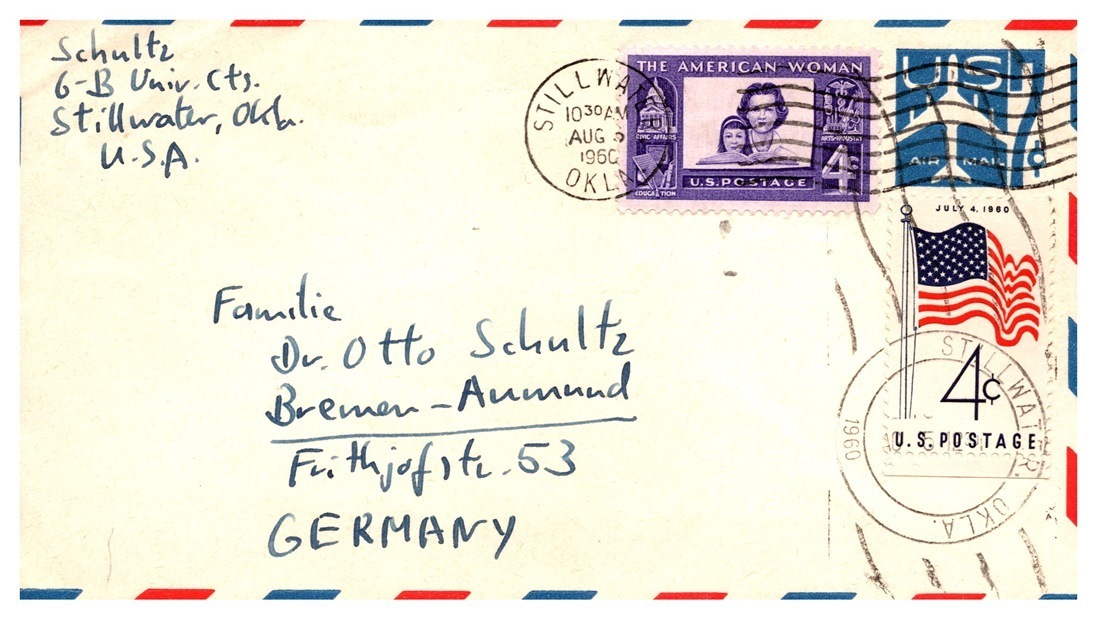 Schultz
6-B Univ. Cts.
Stillwater, Okla.
U.S.A.
STILLWATER
10 30 AM
AUG 5
1960
OKLA.
THE AMERICAN WOMAN
CIVIC AFFAIRS
ARTS-INDUSTRY
EDUCATION
4¢
U.S. POSTAGE
USA
7¢
AIR MAIL
JULY 4, 1960
4¢
U.S. POSTAGE
STILLWATER, OKLA.
1960
Familie
Dr. Otto Schultz
Bremen-Aumund
Frithjofstr. 53
GERMANY